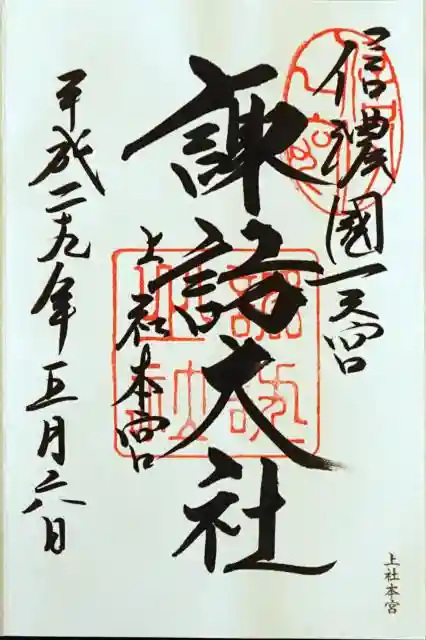 信濃國一之宮
諏訪大社
上社本宮
平成二九年五月六日
上社本宮
諏訪大社